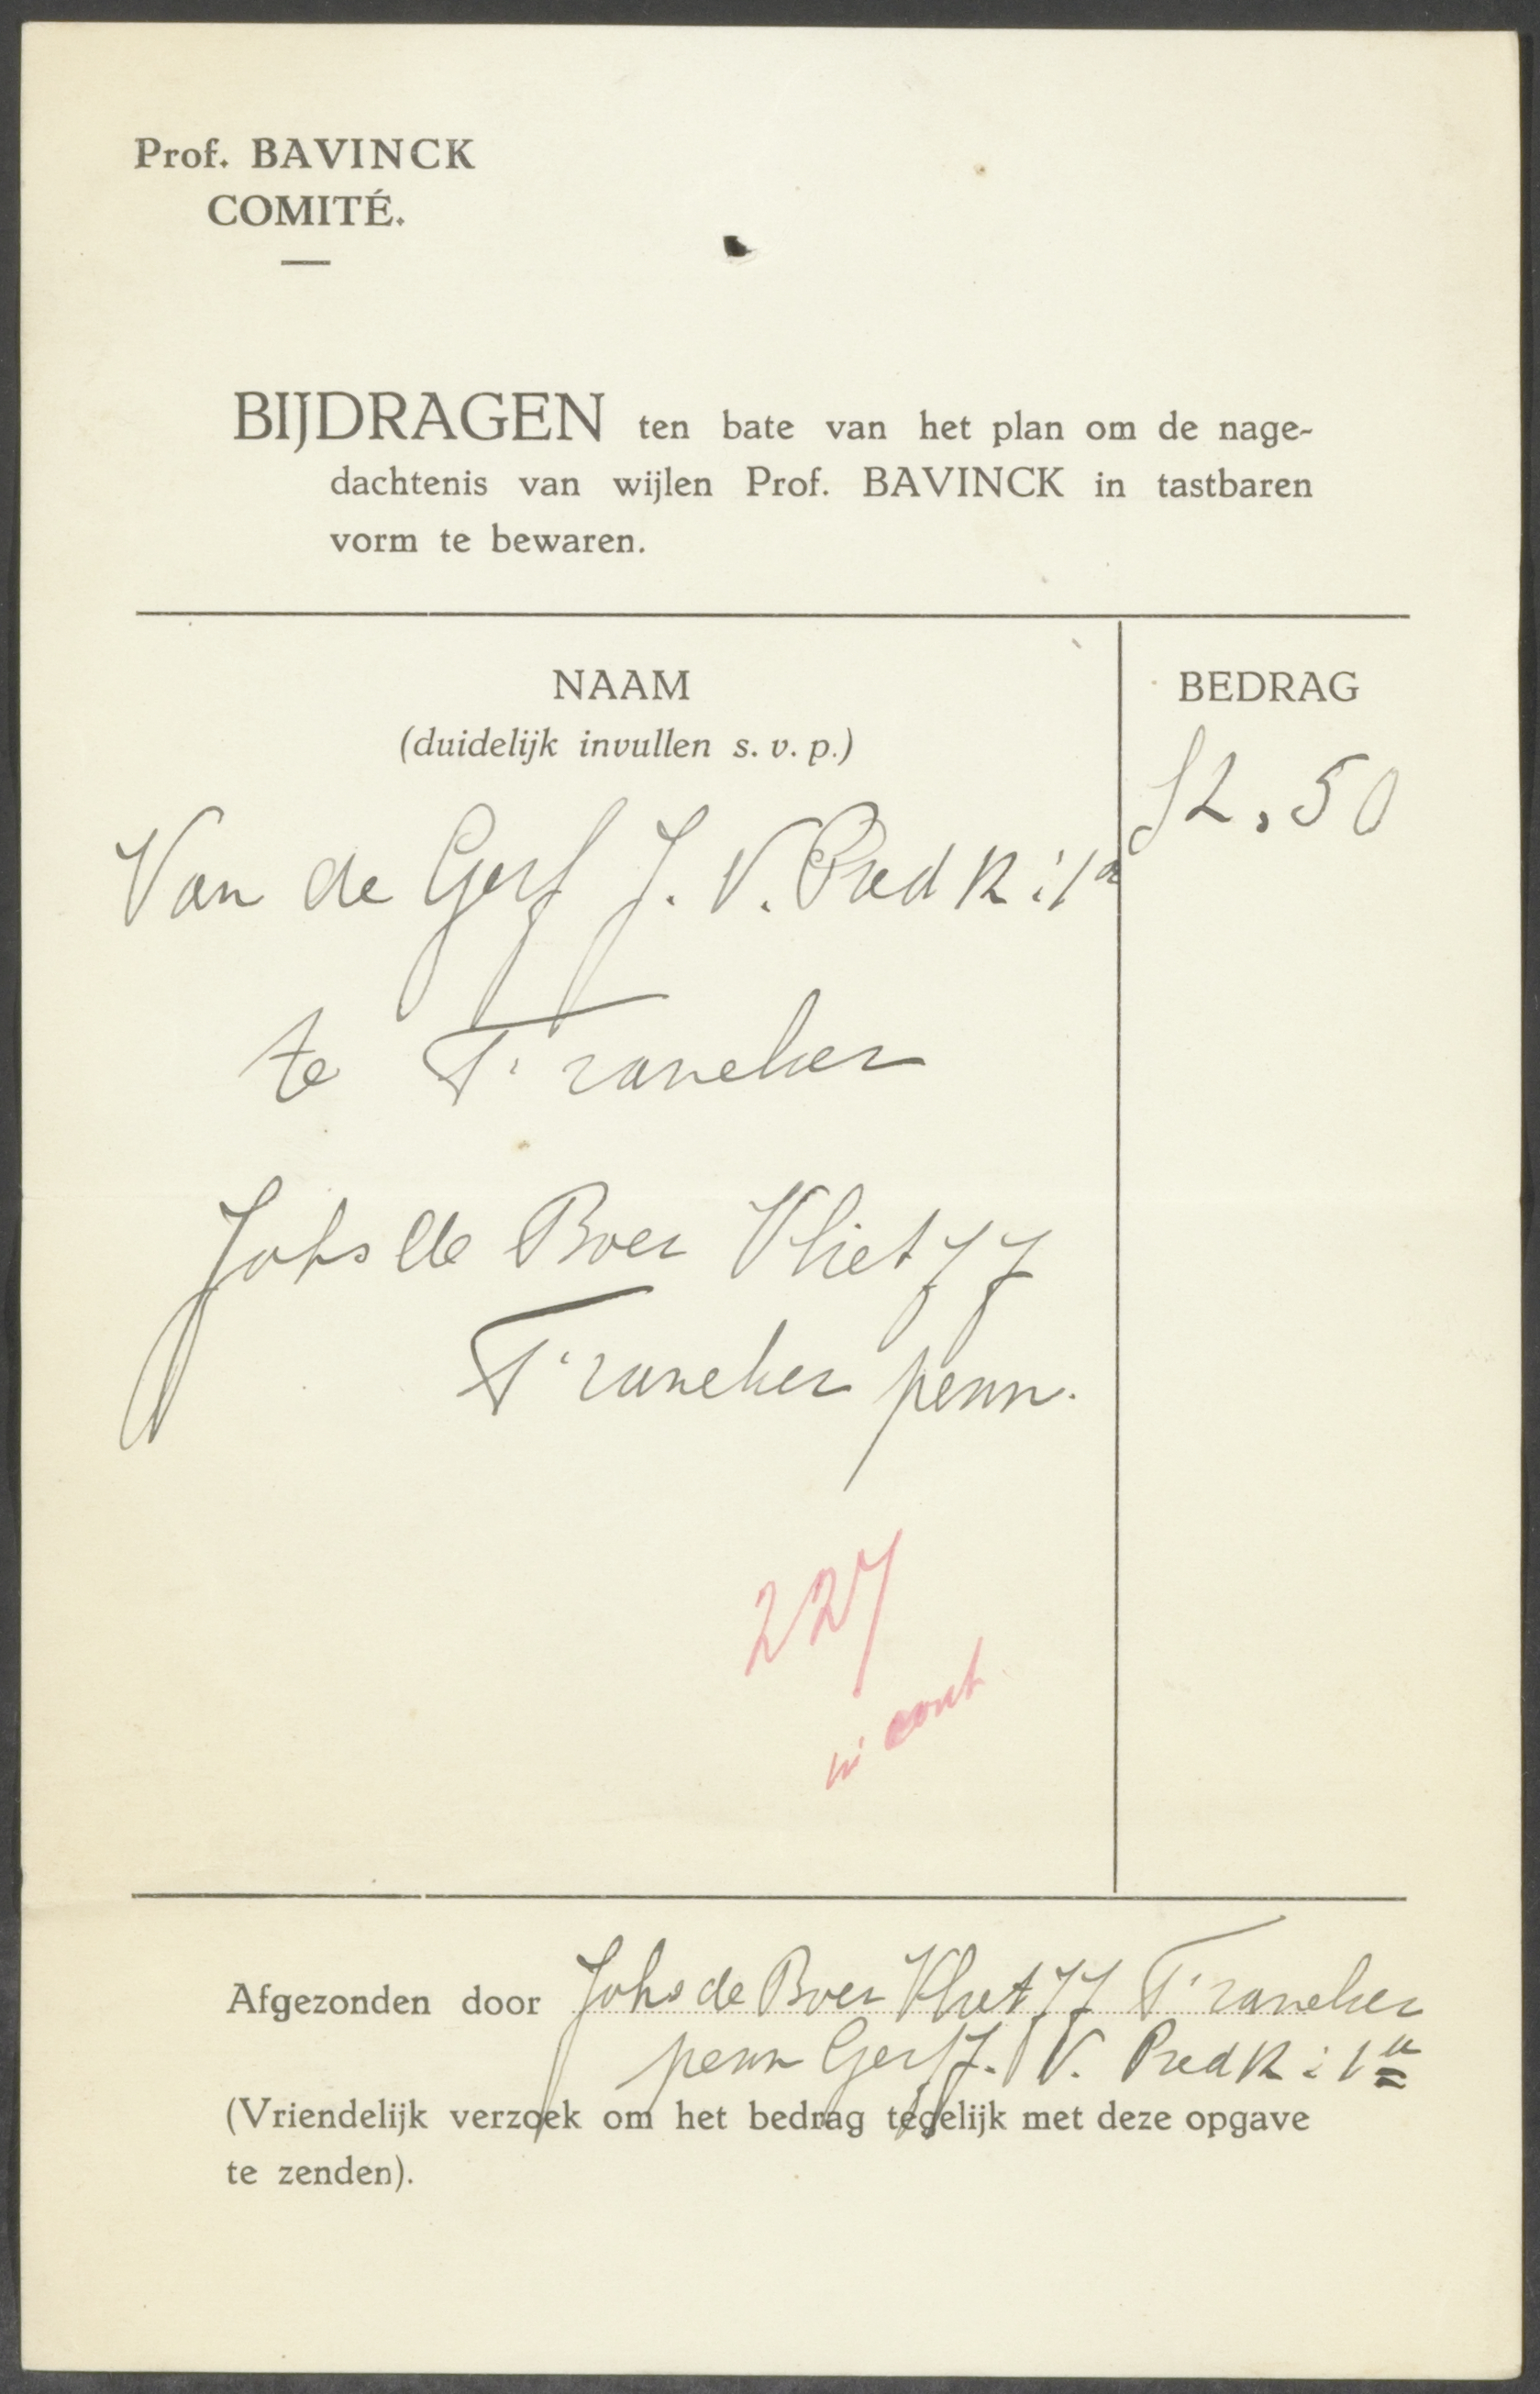 Prof. BAVINCK
COMITÉ.
BIJDRAGEN ten bate van het plan om de nage-
dachtenis van wijlen Prof. BAVINCK in tastbaren
vorm te bewaren.
NAAM
BEDRAG
(duidelijk invullen s. v. p.)
f2.50
Van de Geref J. V. Pred 12:1a
te Franeker
Johs de Boer Vliet 77
Franeker penn.
227
in cont
Afgezonden door Johs de Boer Vliet 77 Franeker
penn Geref J. V. Pred 12:1a
(Vriendelijk verzoek om het bedrag tegelijk met deze opgave
te zenden).